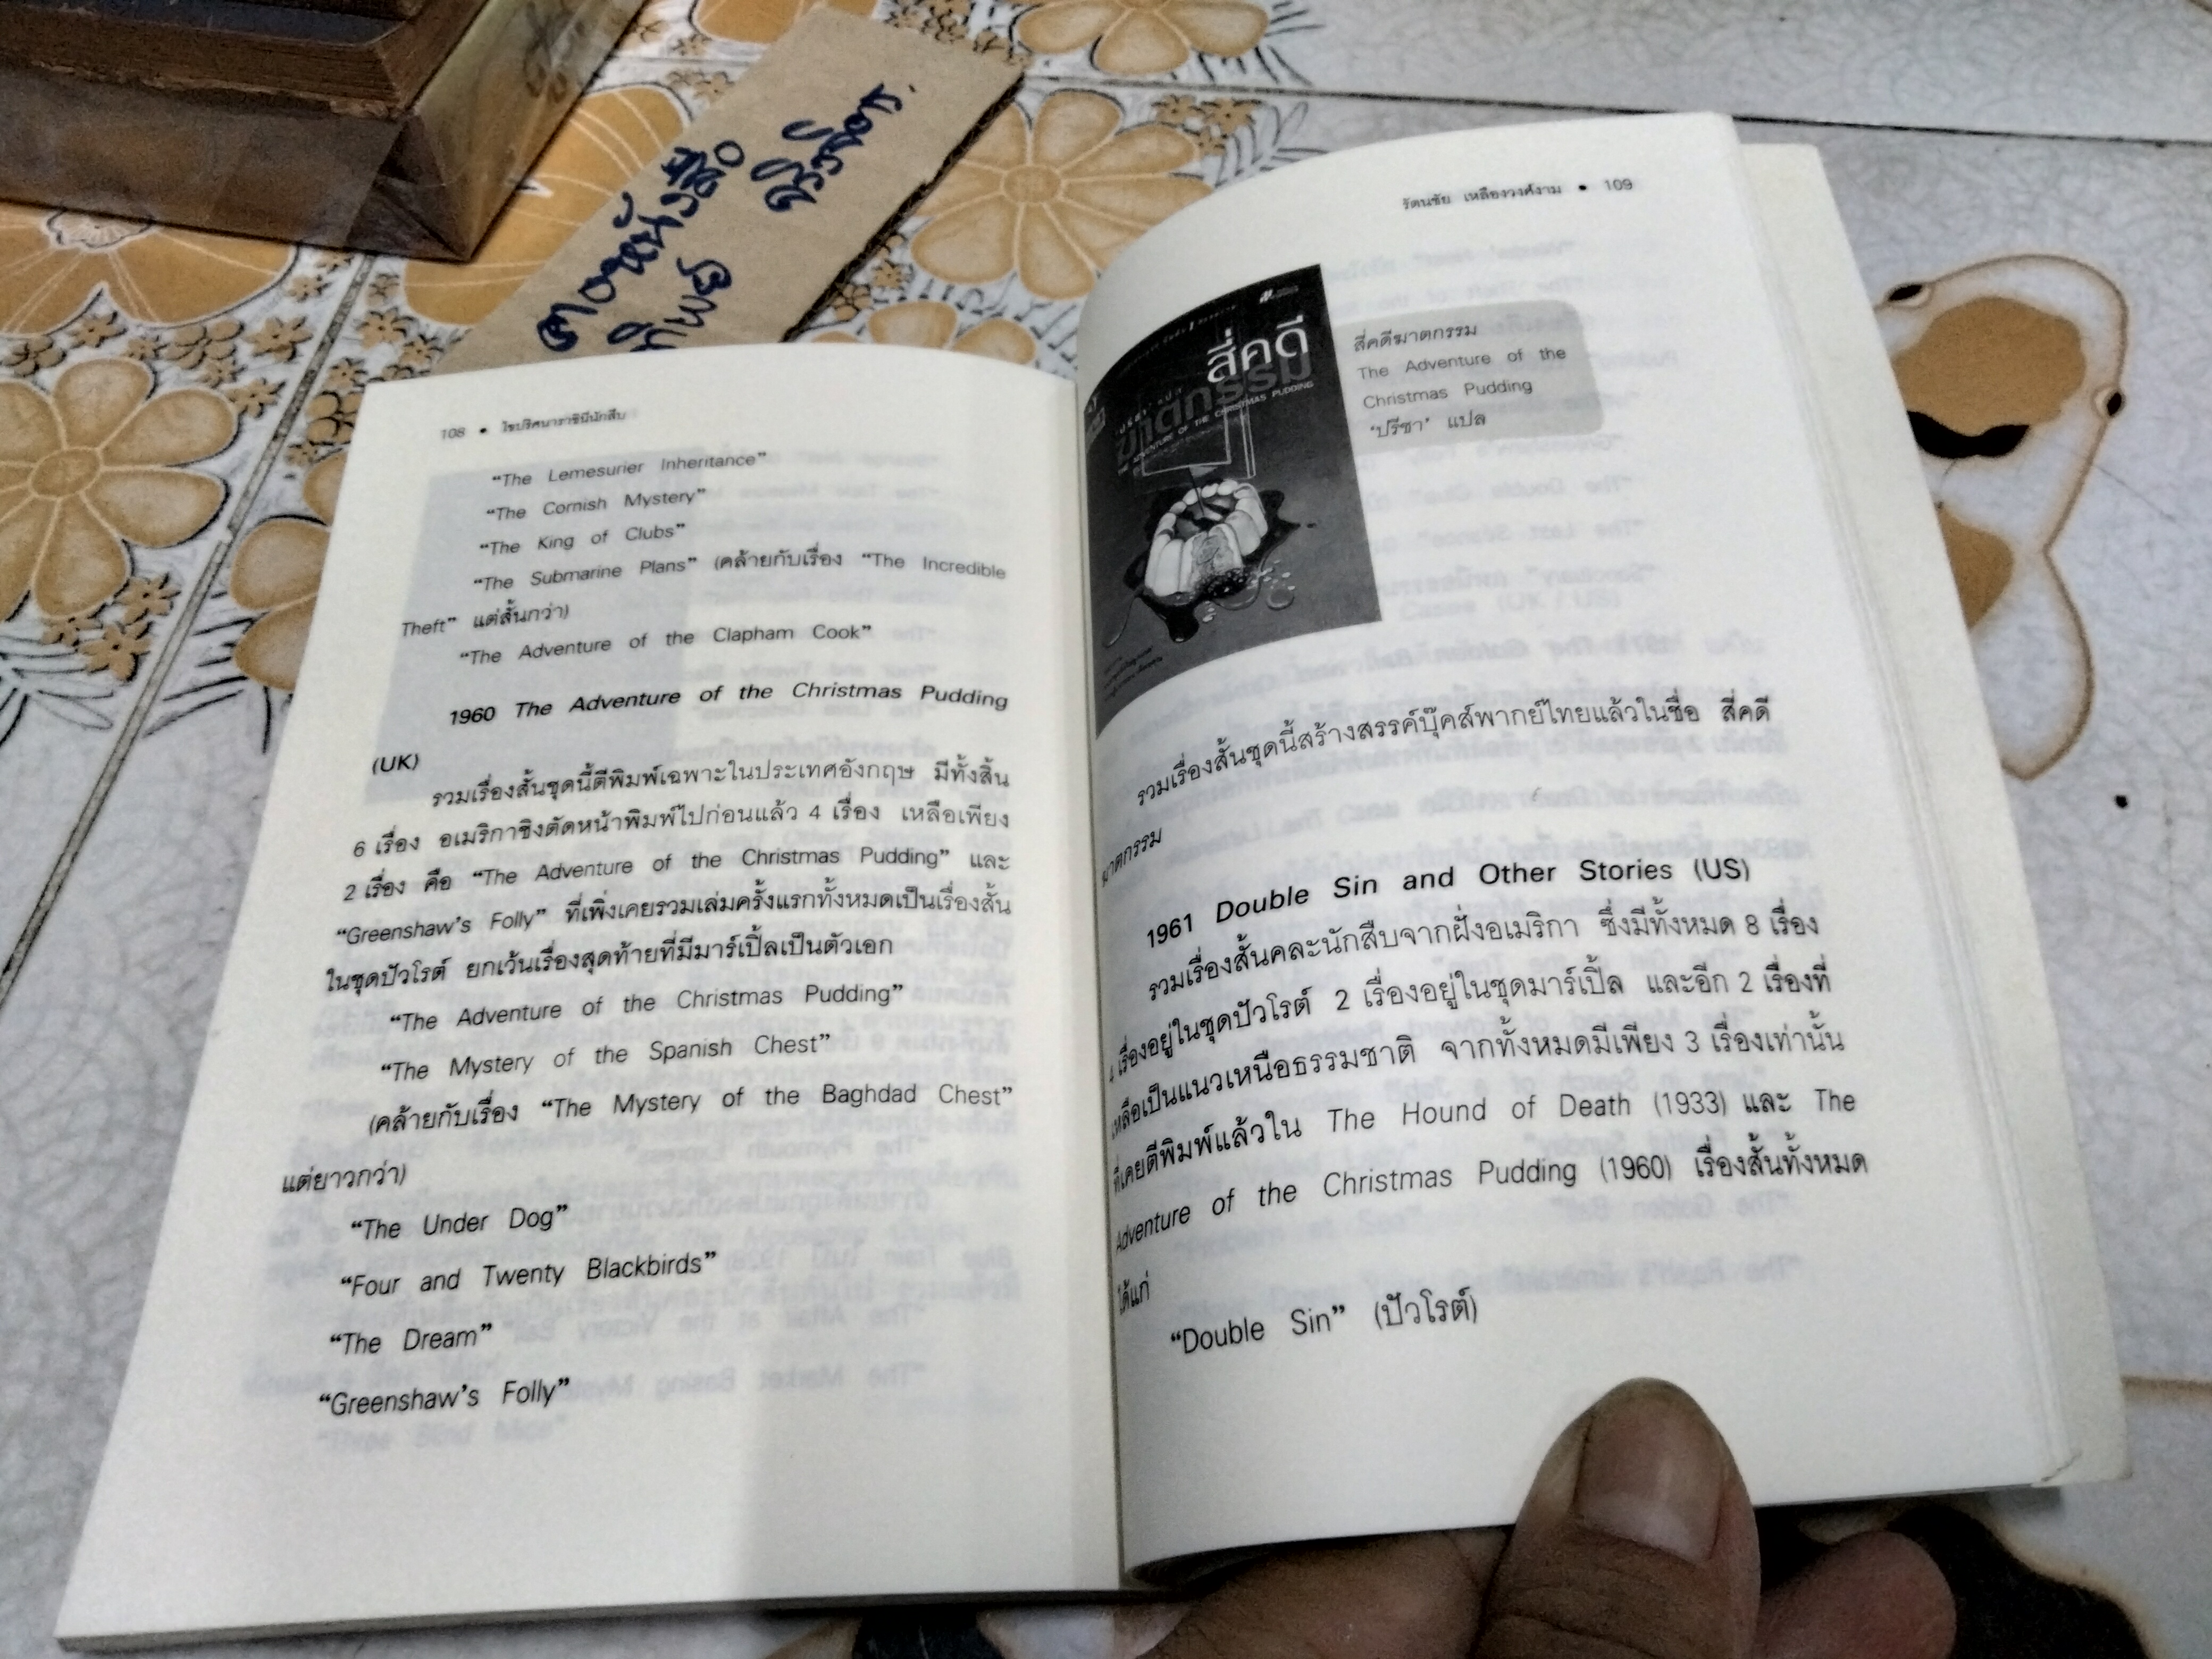 108 • ไขปริศนาราชินีนักสืบ
“The Lemesurier Inheritance”
“The Cornish Mystery”
“The King of Clubs”
“The Submarine Plans” (คล้ายกับเรื่อง “The Incredible
Theft” แต่สั้นกว่า)
“The Adventure of the Clapham Cook”
1960 The Adventure of the Christmas Pudding
(UK)
รวมเรื่องสั้นชุดนี้ตีพิมพ์เฉพาะในประเทศอังกฤษ มีทั้งสิ้น
6 เรื่อง อเมริกาชิงตัดหน้าพิมพ์ไปก่อนแล้ว 4 เรื่อง เหลือเพียง
2 เรื่อง คือ “The Adventure of the Christmas Pudding” และ
“Greenshaw’s Folly” ที่เพิ่งเคยรวมเล่มครั้งแรกทั้งหมดเป็นเรื่องสั้น
ในชุดปัวโรต์ ยกเว้นเรื่องสุดท้ายที่มีมาร์เปิ้ลเป็นตัวเอก
“The Adventure of the Christmas Pudding”
“The Mystery of the Spanish Chest”
(คล้ายกับเรื่อง “The Mystery of the Baghdad Chest”
แต่ยาวกว่า)
“The Under Dog”
“Four and Twenty Blackbirds”
“The Dream”
“Greenshaw’s Folly”
รัตนชัย เหลืองวงศ์งาม • 109
สี่คดี
ฆาตกรรม
THE ADVENTURE OF THE CHRISTMAS PUDDING
สี่คดีฆาตกรรม
The Adventure of the
Christmas Pudding
‘ปรีชา’ แปล
รวมเรื่องสั้นชุดนี้สร้างสรรค์บุ๊คส์พากย์ไทยแล้วในชื่อ สี่คดี
ฆาตกรรม
1961 Double Sin and Other Stories (US)
รวมเรื่องสั้นคละนักสืบจากฝั่งอเมริกา ซึ่งมีทั้งหมด 8 เรื่อง
4 เรื่องอยู่ในชุดปัวโรต์ 2 เรื่องอยู่ในชุดมาร์เปิ้ล และอีก 2 เรื่องที่
เหลือเป็นแนวเหนือธรรมชาติ จากทั้งหมดมีเพียง 3 เรื่องเท่านั้น
ที่เคยตีพิมพ์แล้วใน The Hound of Death (1933) และ The
Adventure of the Christmas Pudding (1960) เรื่องสั้นทั้งหมด
ได้แก่
“Double Sin” (ปัวโรต์)